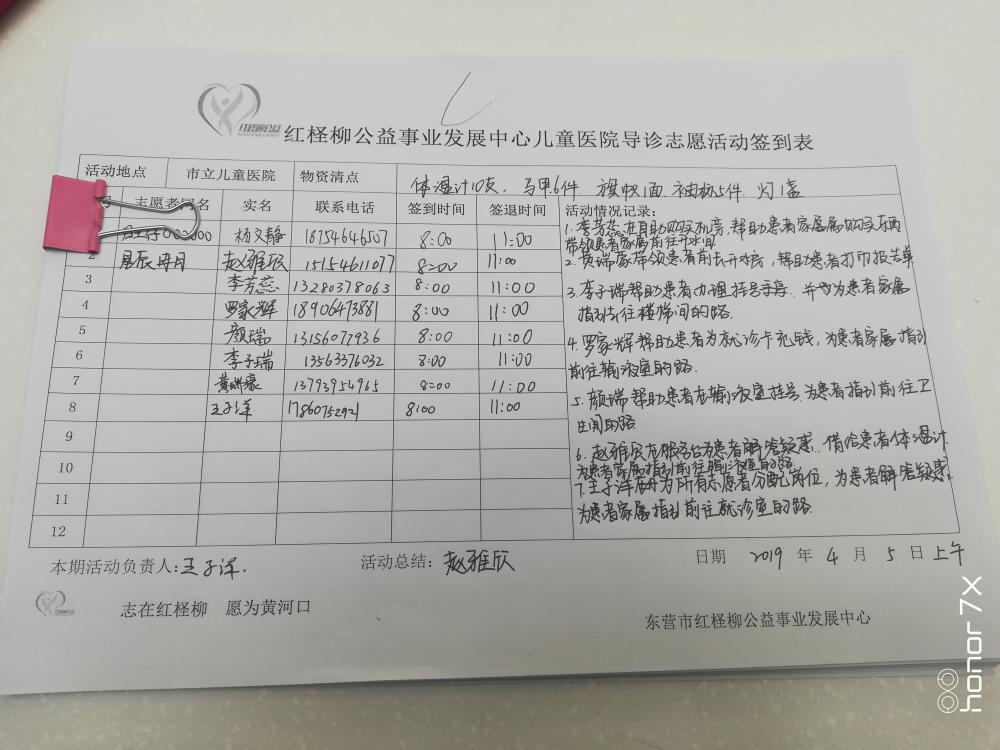 红柽柳公益
红柽柳公益事业发展中心儿童医院导诊志愿活动签到表
活动地点 市立儿童医院 物资清点 体温计10支. 马甲6件 旗帜1面 袖标5件 灯1盏
号 志愿者网名 实名 联系电话 签到时间 签退时间 活动情况记录:
杨文静 18754646507 8:00 11:00
2 星辰 赵雅欣 15154611077 8:00 11:00
3 李芳蕊 13280378063 8:00 11:00
4 罗家辉 18906473881 8:00 11:00
5 颜瑞 13156077936 8:00 11:00
6 李子瑞 13563376032 8:00 11:00
7 黄瑞豪 13793954965 8:00 11:00
8 王子洋 17860752921 8:00 11:00
9
10
11
12
1. 李芳蕊在自助机旁, 帮助患者家属
带领患者家属前往开水间
2. 黄瑞豪带领患者前去开水房, 帮助患者打印报告单
3. 李子瑞帮助患者办理挂号手续. 并为患者家属
指引去往楼梯间的路.
4. 罗家辉帮助患者为就诊卡充钱, 为患者家属指引
前往输液室的路.
5. 颜瑞帮助患者在输液室挂号, 为患者指引前往卫
生间的路
6. 赵雅欣在服务台为患者解答疑惑. 借给患者体温计
为患者家属指引前往输液室的路.
7. 王子洋为所有志愿者分配岗位, 为患者解答疑惑.
为患者家属指引前往就诊室的路.
本期活动负责人:王子洋. 活动总结:赵雅欣 日期 2019 年 4 月 5 日 上午
志在红柽柳 愿为黄河口
东营市红柽柳公益事业发展中心
honor 7X